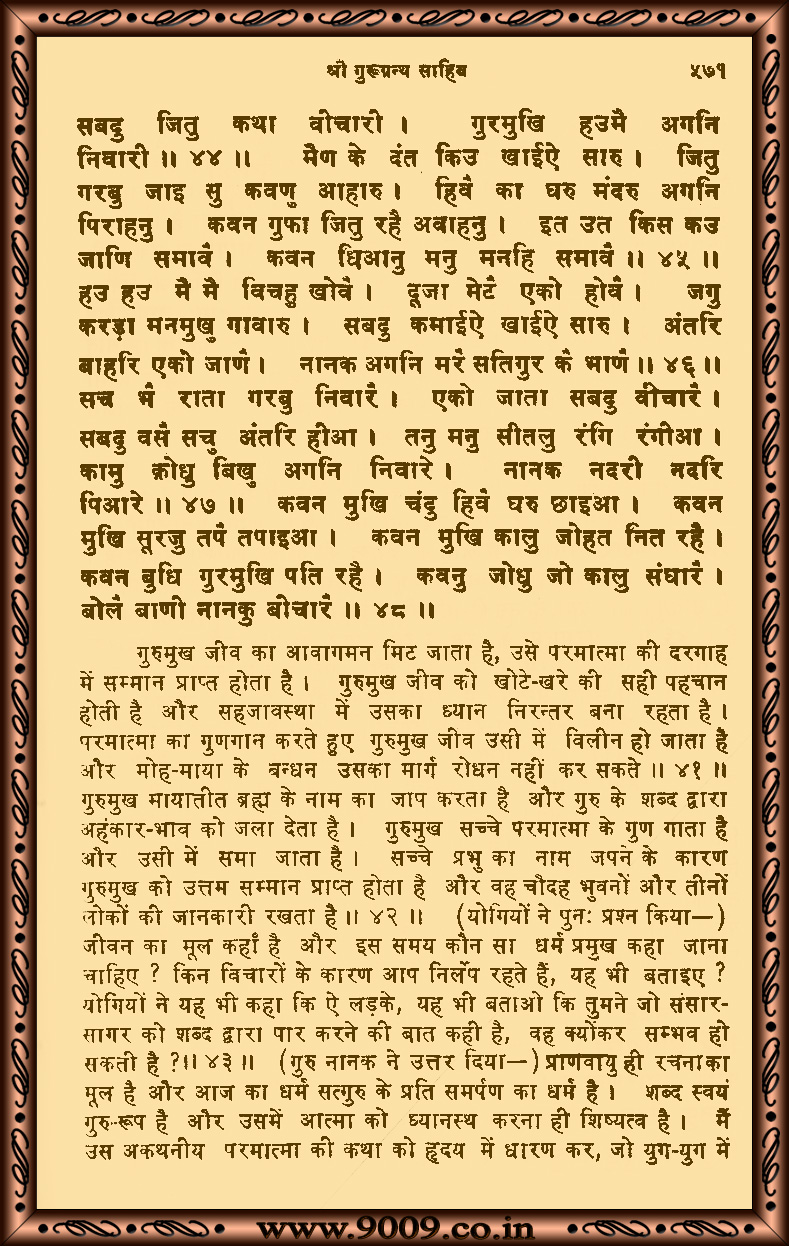 श्री गुरूग्रन्थ साहिब ५७१
सबदु जितु कथा वीचारी । गुरमुखि हउमै अगनि
निवारी ॥ ४४ ॥ मैण के दंत किउ खाईऐ सारु । जितु
गरबु जाइ सु कवणु आहारु । हिवै का घरु मंदरु अगनि
पिराहनु । कवन गुफा जितु रहै अवाहनु । इत उत किस कउ
जाणि समावै । कवन धिआनु मनु मनहि समावै ॥ ४५ ॥
हउ हउ मै मै विचहु खोवै । दूजा मेटै एको होवै । जगु
करड़ा मनमुखु गावारु । सबदु कमाईऐ खाईऐ सारु । अंतरि
बाहरि एको जाणै । नानक अगनि मरै सतिगुर कै भाणै ॥ ४६ ॥
सच भै राता गरबु निवारै । एको जाता सबदु वीचारै ।
सबदु वसै सचु अंतरि हीआ । तनु मनु सीतलु रंगि रंगीआ ।
कामु क्रोधु बिखु अगनि निवारे । नानक नदरी नदरि
पिआरे ॥ ४७ ॥ कवन मुखि चंदु हिवै घरु छाइआ । कवन
मुखि सूरजु तपै तपाइआ । कवन मुखि कालु जोहत नित रहै ।
कवन बुधि गुरमुखि पति रहै । कवनु जोधु जो कालु संघारै ।
बोलै बाणी नानकु बीचारै ॥ ४८ ॥
गुरुमुख जीव का आवागमन मिट जाता है, उसे परमात्मा की दरगाह
में सम्मान प्राप्त होता है । गुरुमुख जीव को खोटे-खरे की सही पहचान
होती है और सहजावस्था में उसका ध्यान निरन्तर बना रहता है ।
परमात्मा का गुणगान करते हुए गुरुमुख जीव उसी में विलीन हो जाता है
और मोह-माया के बन्धन उसका मार्ग रोधन नहीं कर सकते ॥ ४१ ॥
गुरुमुख मायातीत ब्रह्म के नाम का जाप करता है और गुरु के शब्द द्वारा
अहंकार-भाव को जला देता है । गुरुमुख सच्चे परमात्मा के गुण गाता है
और उसी में समा जाता है । सच्चे प्रभु का नाम जपने के कारण
गुरुमुख को उत्तम सम्मान प्राप्त होता है और वह चौदह भुवनों और तीनों
लोकों की जानकारी रखता है ॥ ४२ ॥ (योगियों ने पुनः प्रश्न किया—)
जीवन का मूल कहाँ है और इस समय कौन सा धर्म प्रमुख कहा जाना
चाहिए ? किन विचारों के कारण आप निर्लेप रहते हैं, यह भी बताइए ?
योगियों ने यह भी कहा कि ऐ लड़के, यह भी बताओ कि तुमने जो संसार-
सागर को शब्द द्वारा पार करने की बात कही है, वह क्योंकर सम्भव हो
सकती है ?॥ ४३ ॥ (गुरु नानक ने उत्तर दिया—) प्राणवायु ही रचना का
मूल है और आज का धर्म सत्गुरु के प्रति समर्पण का धर्म है । शब्द स्वयं
गुरु-रूप है और उसमें आत्मा को ध्यानस्थ करना ही शिष्यत्व है । मैं
उस अकथनीय परमात्मा की कथा को हृदय में धारण कर, जो युग-युग में
www.9009.co.in